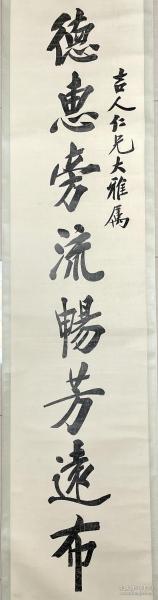 吉人仁兄大雅属
德惠旁流暢芳遠布